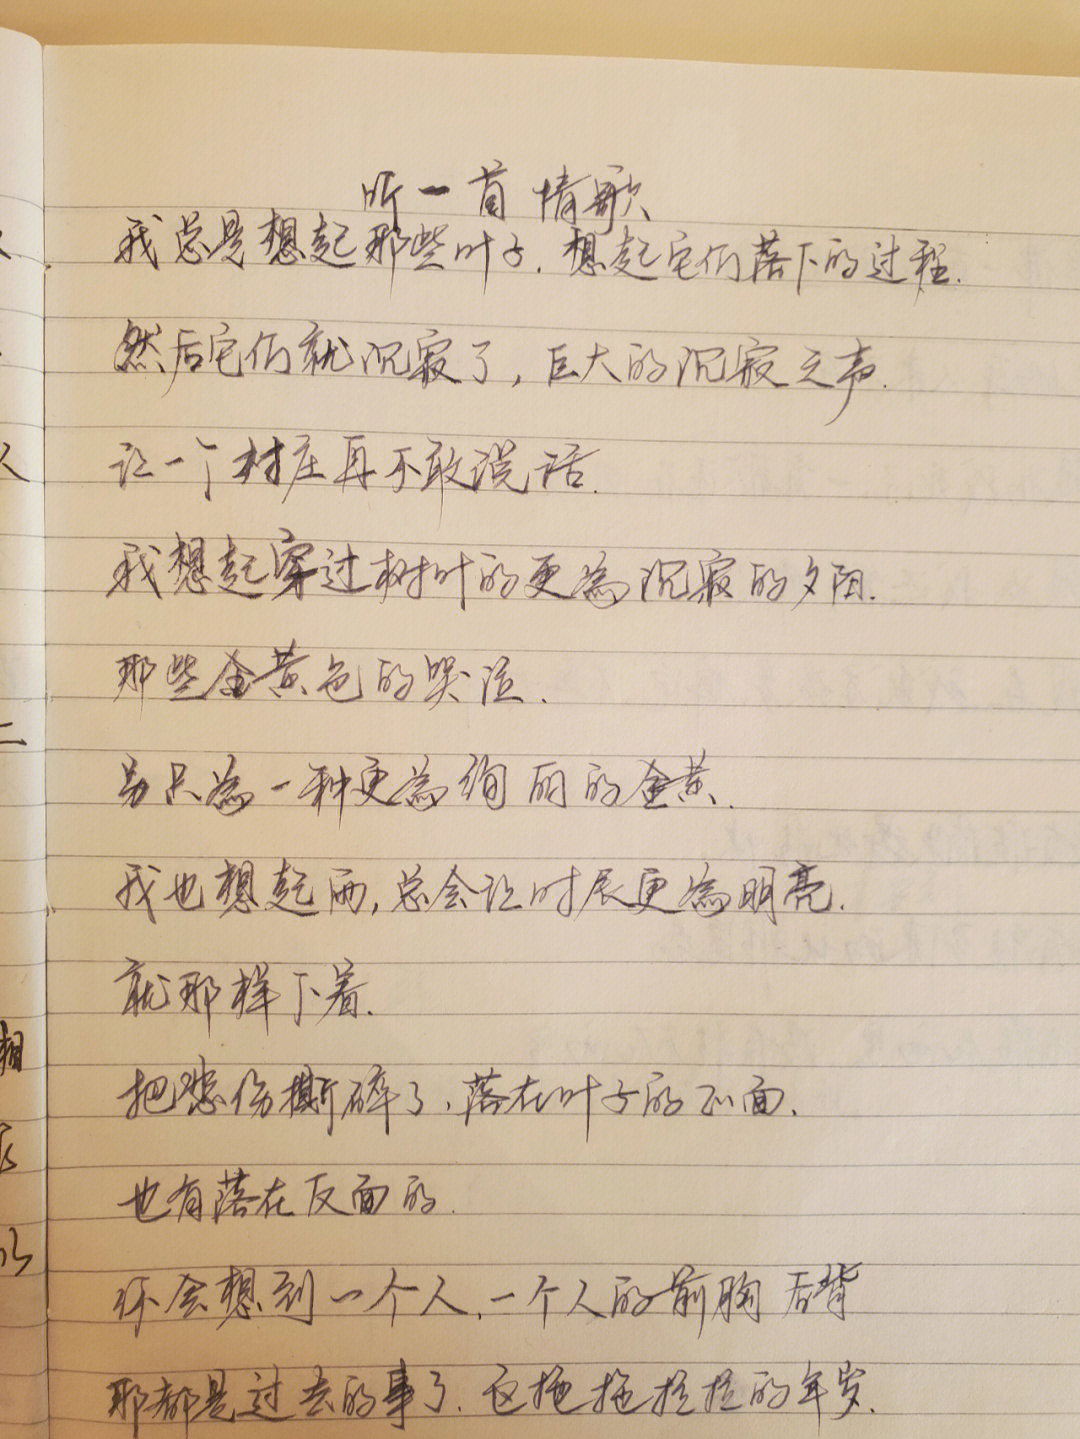 听一首情歌
我总是想起那些叶子.想起它们落下的过程.
然后它们就沉寂了,巨大的沉寂之声.
让一个村庄再不敢说话.
我想起穿过树叶的更为沉寂的夕阳.
那些金黄色的哭泣.
另只为一种更为绚丽的金黄.
我也想起雨,总会让时辰更为明亮.
就那样下着.
把悲伤撕碎了.落在叶子的正面.
也有落在反面的.
你会想到一个人.一个人的前胸后背
那都是过去的事了.这拖拖拉拉的年岁.
人
二
相